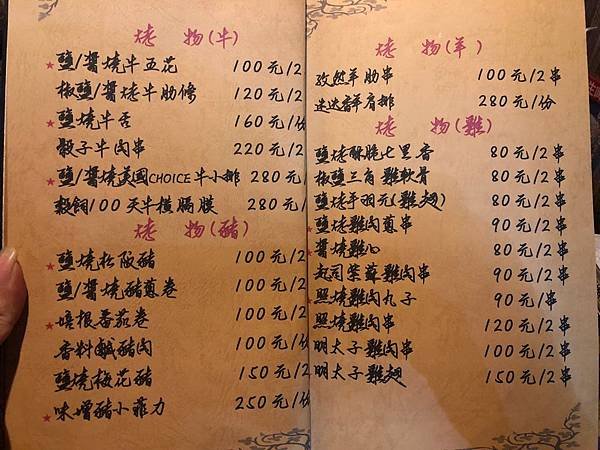 烤 物(牛)
★鹽/醬燒牛五花 100元/2
椒鹽/醬烤牛肋條 120元/2
★鹽燒牛舌 160元/份
骰子牛肉串 220元/2
★鹽/醬燒美國CHOICE牛小排 280元/
穀飼100天牛橫膈膜 280元/
烤 物(豬)
★鹽燒松阪豬 100元/2
鹽/醬燒豬蔥卷 100元/2
★培根番茄卷 100元/2
香料鹹豬肉 100元/份
鹽燒梅花豬 150元/2
★味噌豬小菲力 250元/份
烤 物(羊)
孜然羊肋串 100元/2串
迷迭香羊肩排 280元/份
烤 物(雞)
鹽烤酥脆七里香 80元/2串
椒鹽三角雞軟骨 80元/2串
鹽烤手羽元(雞翅) 80元/2串
★鹽烤雞肉蔥串 90元/2串
★醬燒雞心 80元/2串
★起司紫蘇雞肉串 90元/2串
★照燒雞肉丸子 90元/串
★照燒雞肉串 120元/2串
明太子雞肉串 100元/2串
★明太子雞翅 150元/2串